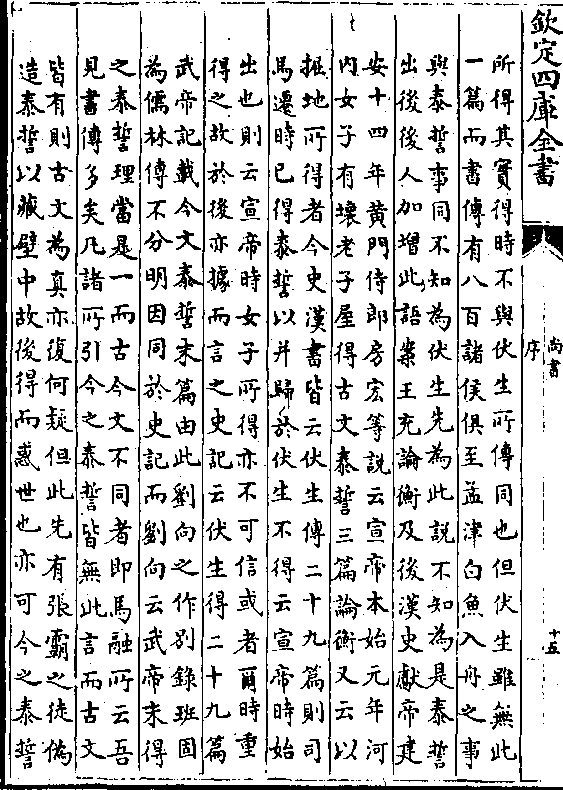 欽定四庫全書
尚書
序
十五
所得其實得時不與伏生所傳同也但伏生雖無此
一篇而書傳有八百諸侯俱至孟津白魚入舟之事
與泰誓事同不知為伏生先為此說不知為是泰誓
出後後人加增此語案王充論衡及後漢史獻帝建
安十四年黄門侍郎房宏等說云宣帝本始元年河
内女子有壞老子屋得古文泰誓三篇論衡又云以
掘地所得者今史漢書皆云伏生傳二十九篇則司
馬遷時已得泰誓以并歸於伏生不得云宣帝時始
出也則云宣帝時女子所得亦不可信或者爾時重
得之故於後亦據而言之史記云伏生得二十九篇
武帝記載今文泰誓末篇由此劉向之作别錄班固
為儒林傳不分明因同於史記而劉向云武帝末得
之泰誓理當是一而古今文不同者即馬融所云吾
見書傳多矣凡諸所引今之泰誓皆無此言而古文
皆有則古文為真亦復何疑但此先有張霸之徒偽
造泰誓以藏壁中故後得而惑世也亦可今之泰誓